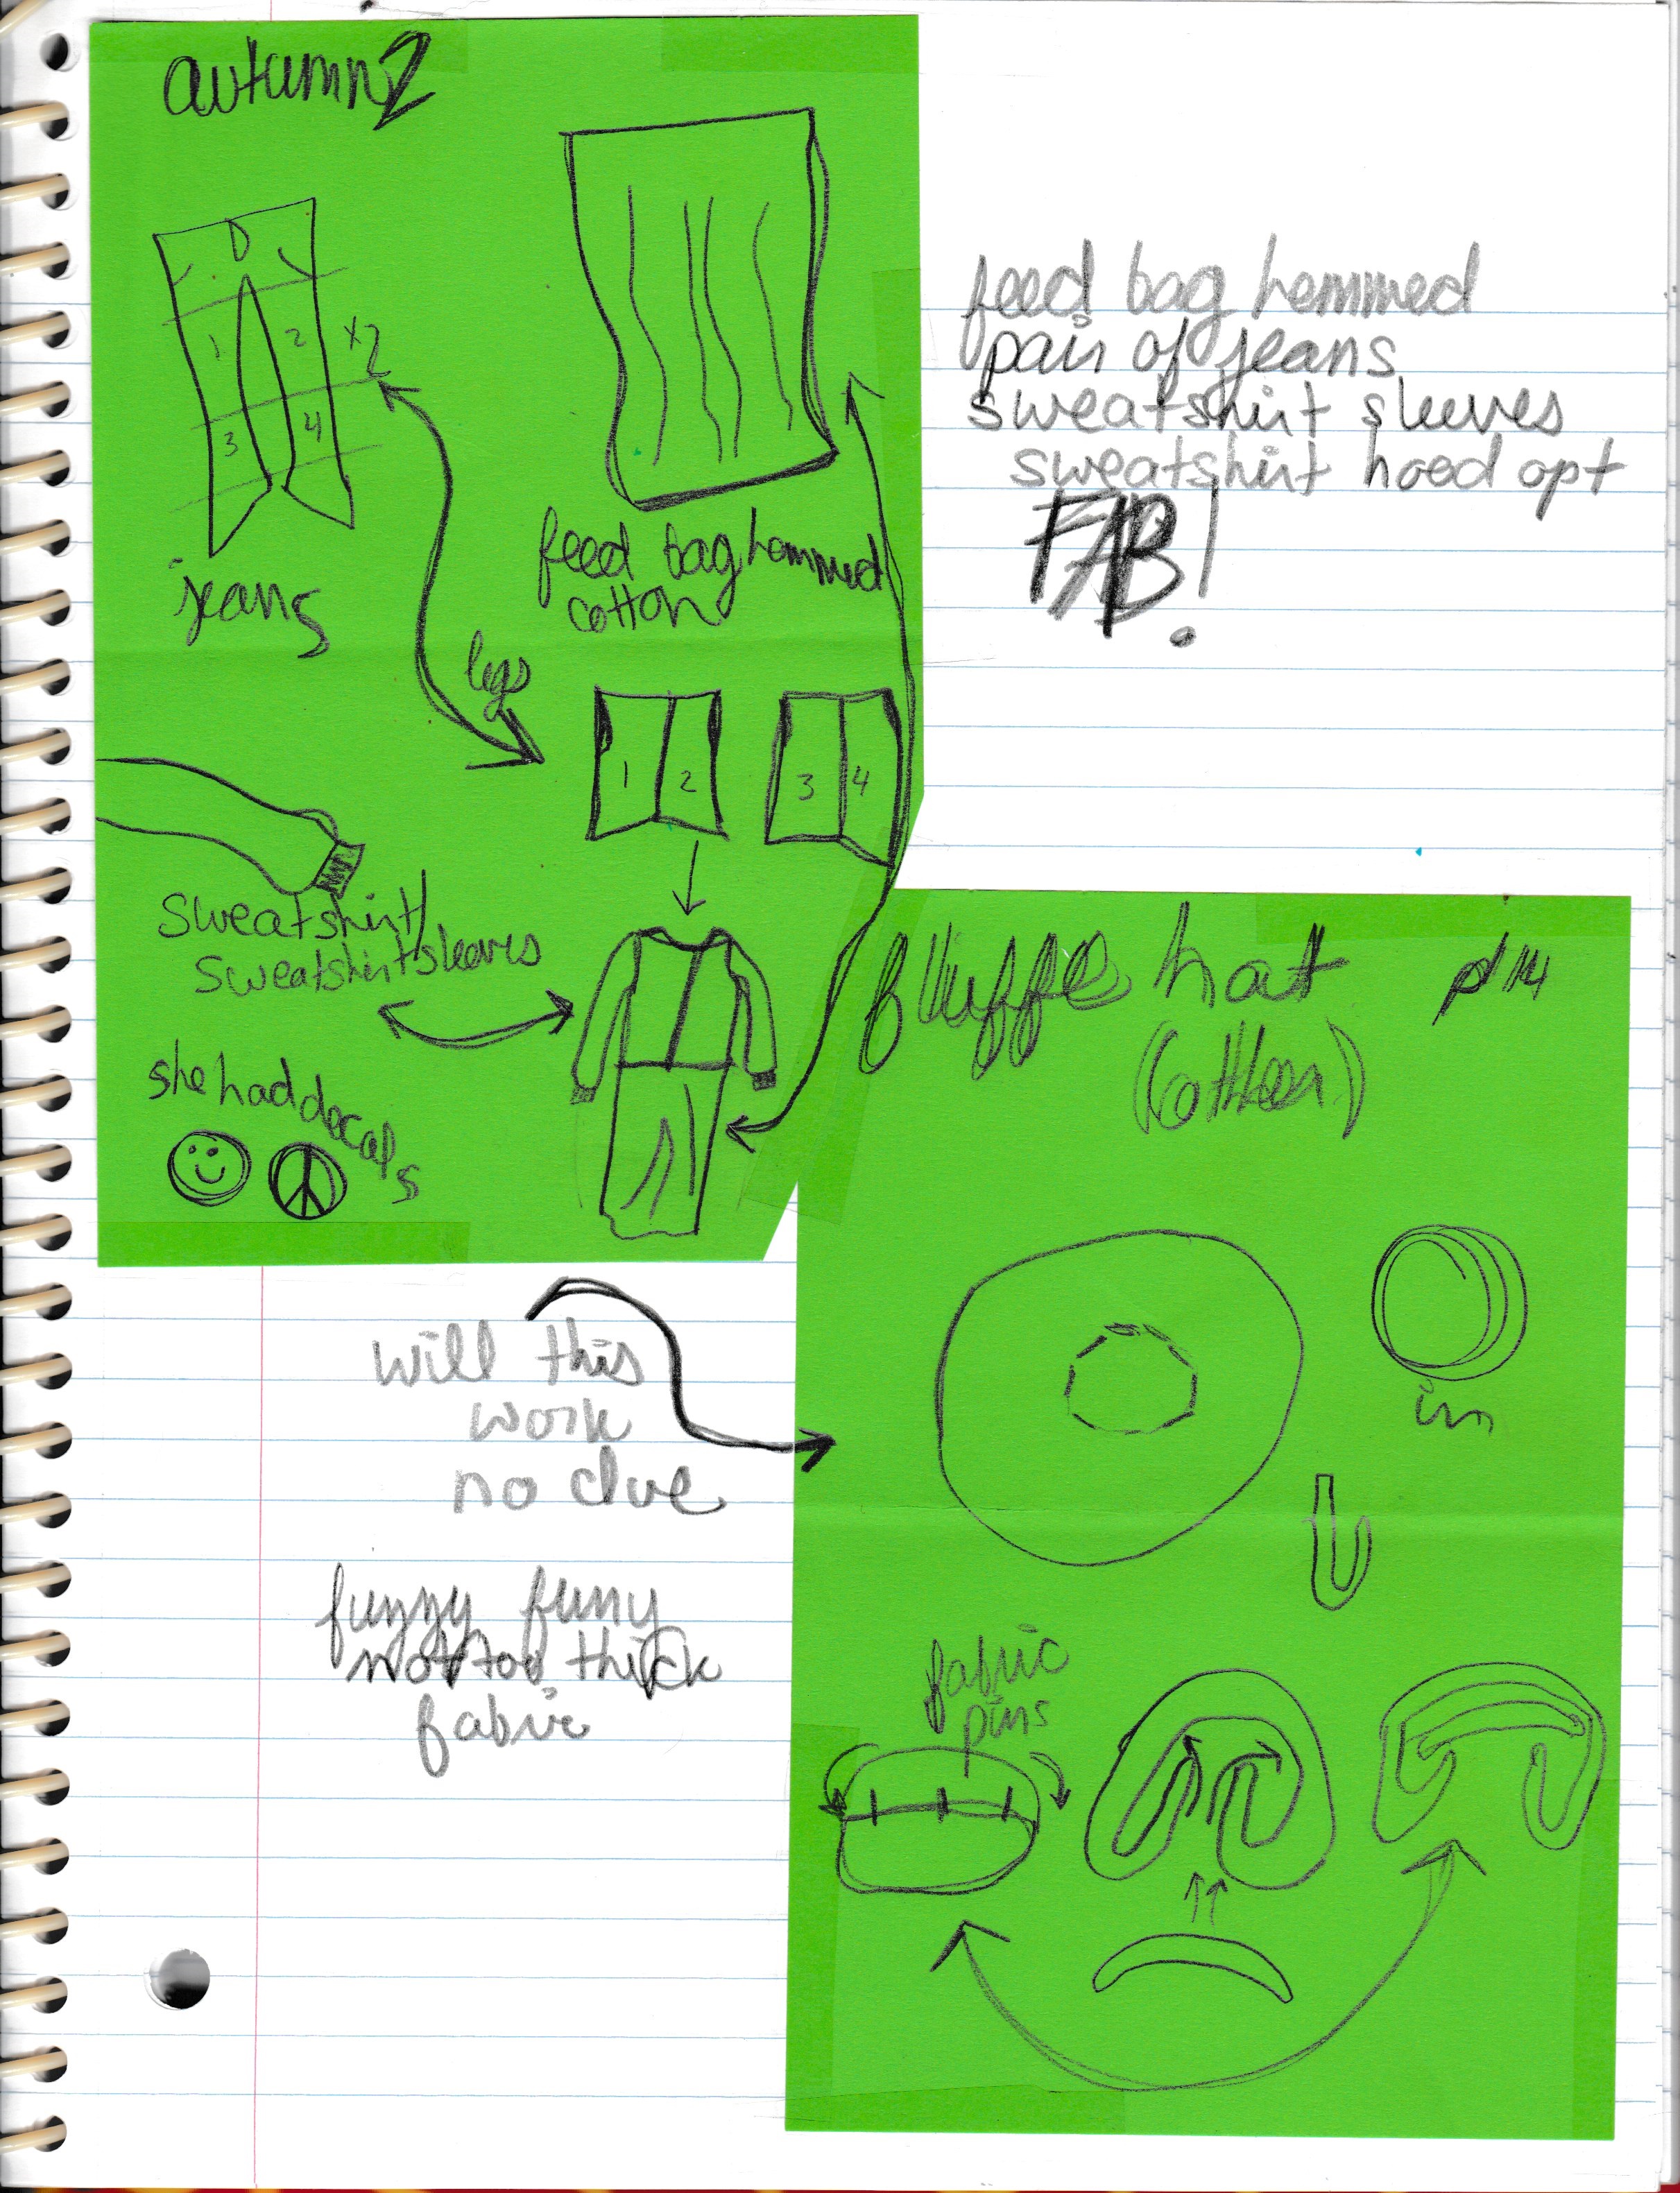 autumn 2
D
1 2 x2
3 4
jeans
feed bag hemmed
cotton
legs
1 2 3 4
sweatshirt
sweatshirt sleeves
she had docals
feed bag hemmed
pair of jeans
sweatshirt sleeves
sweatshirt hood opt
FAB!
hat
will this
work
no clue
fuzzy furry
not too thick
fabric
in
fabric
pins